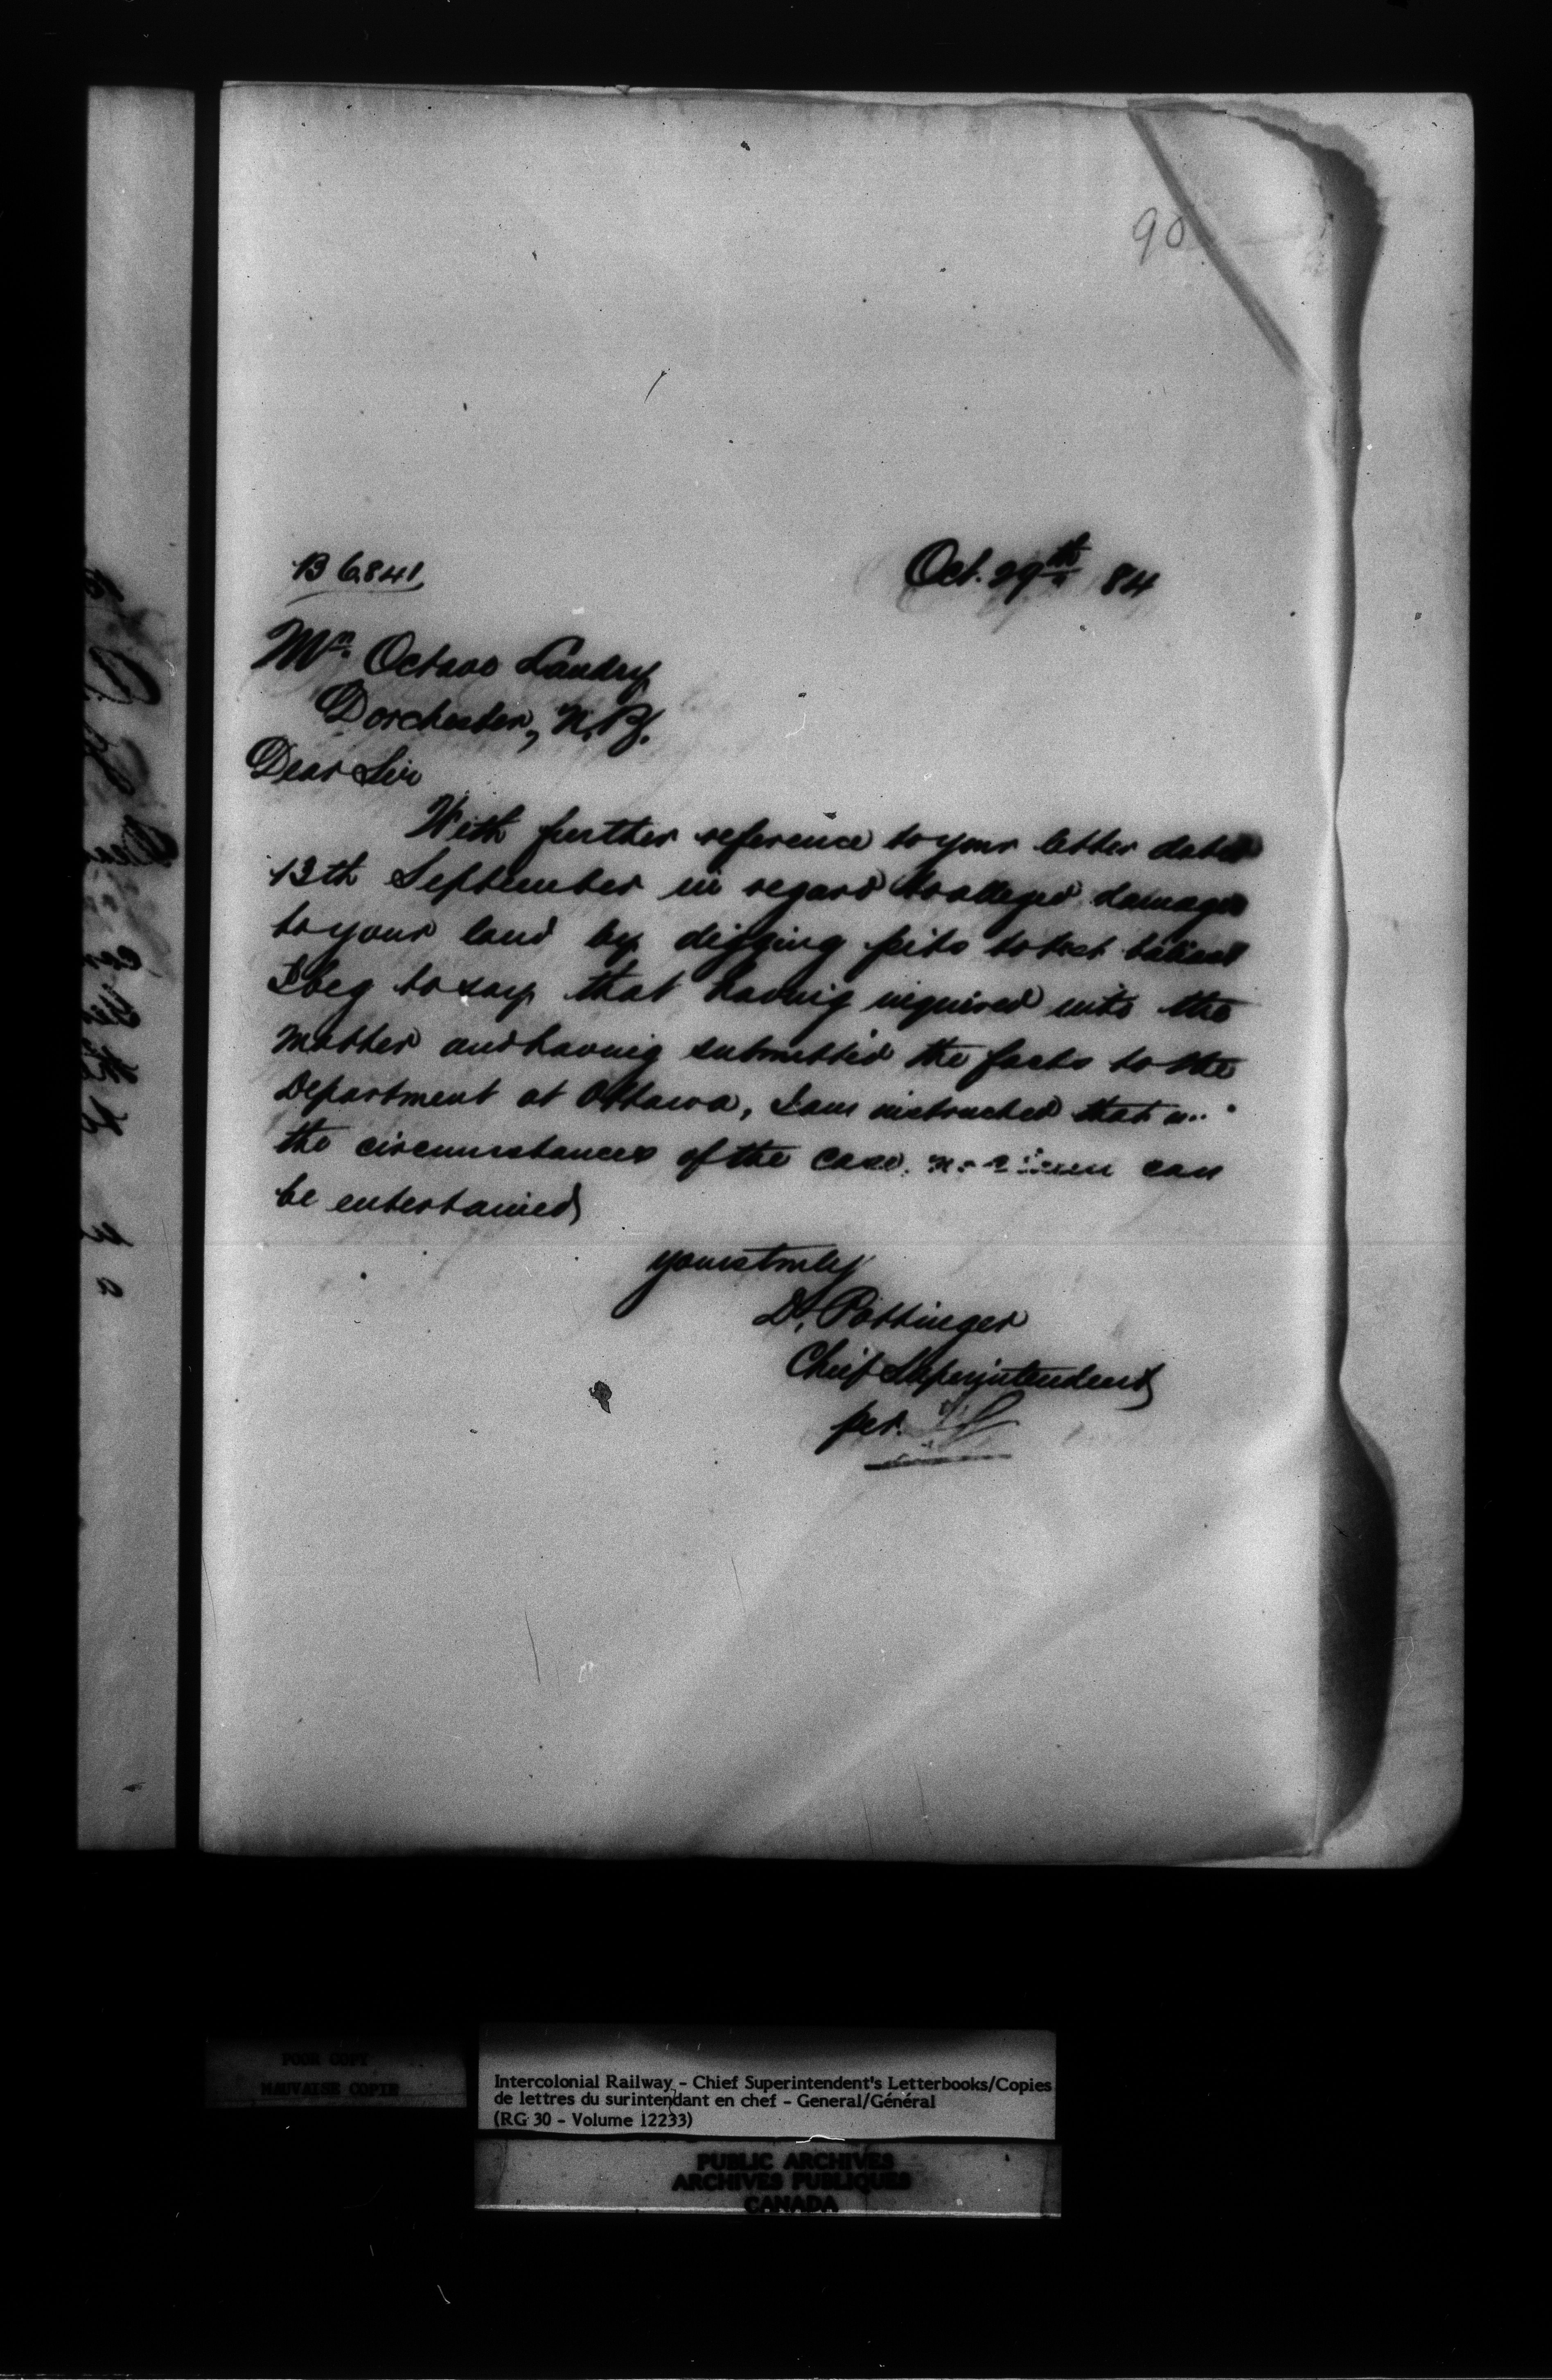 90
B 6841
Oct. 29th 84
Mr. Octave Landry
Dorchester, N.B.
Dear Sir
With further reference to your letter dated
13th September in regard to alleged damages
to your land by digging pits to test ballast
I beg to say that having inquired into the
matter and having submitted the facts to the
Department at Ottawa, I am instructed that
the circumstances of the case, no can
be entertained
yours truly
D. Pottinger
Chief Superintendent
per.
POOR COPY
MAUVAISE COPIE
Intercolonial Railway - Chief Superintendent's Letterbooks/Copies
de lettres du surintendant en chef - General/Général
(RG 30 - Volume 12233)
PUBLIC ARCHIVES
ARCHIVES PUBLIQUES
CANADA